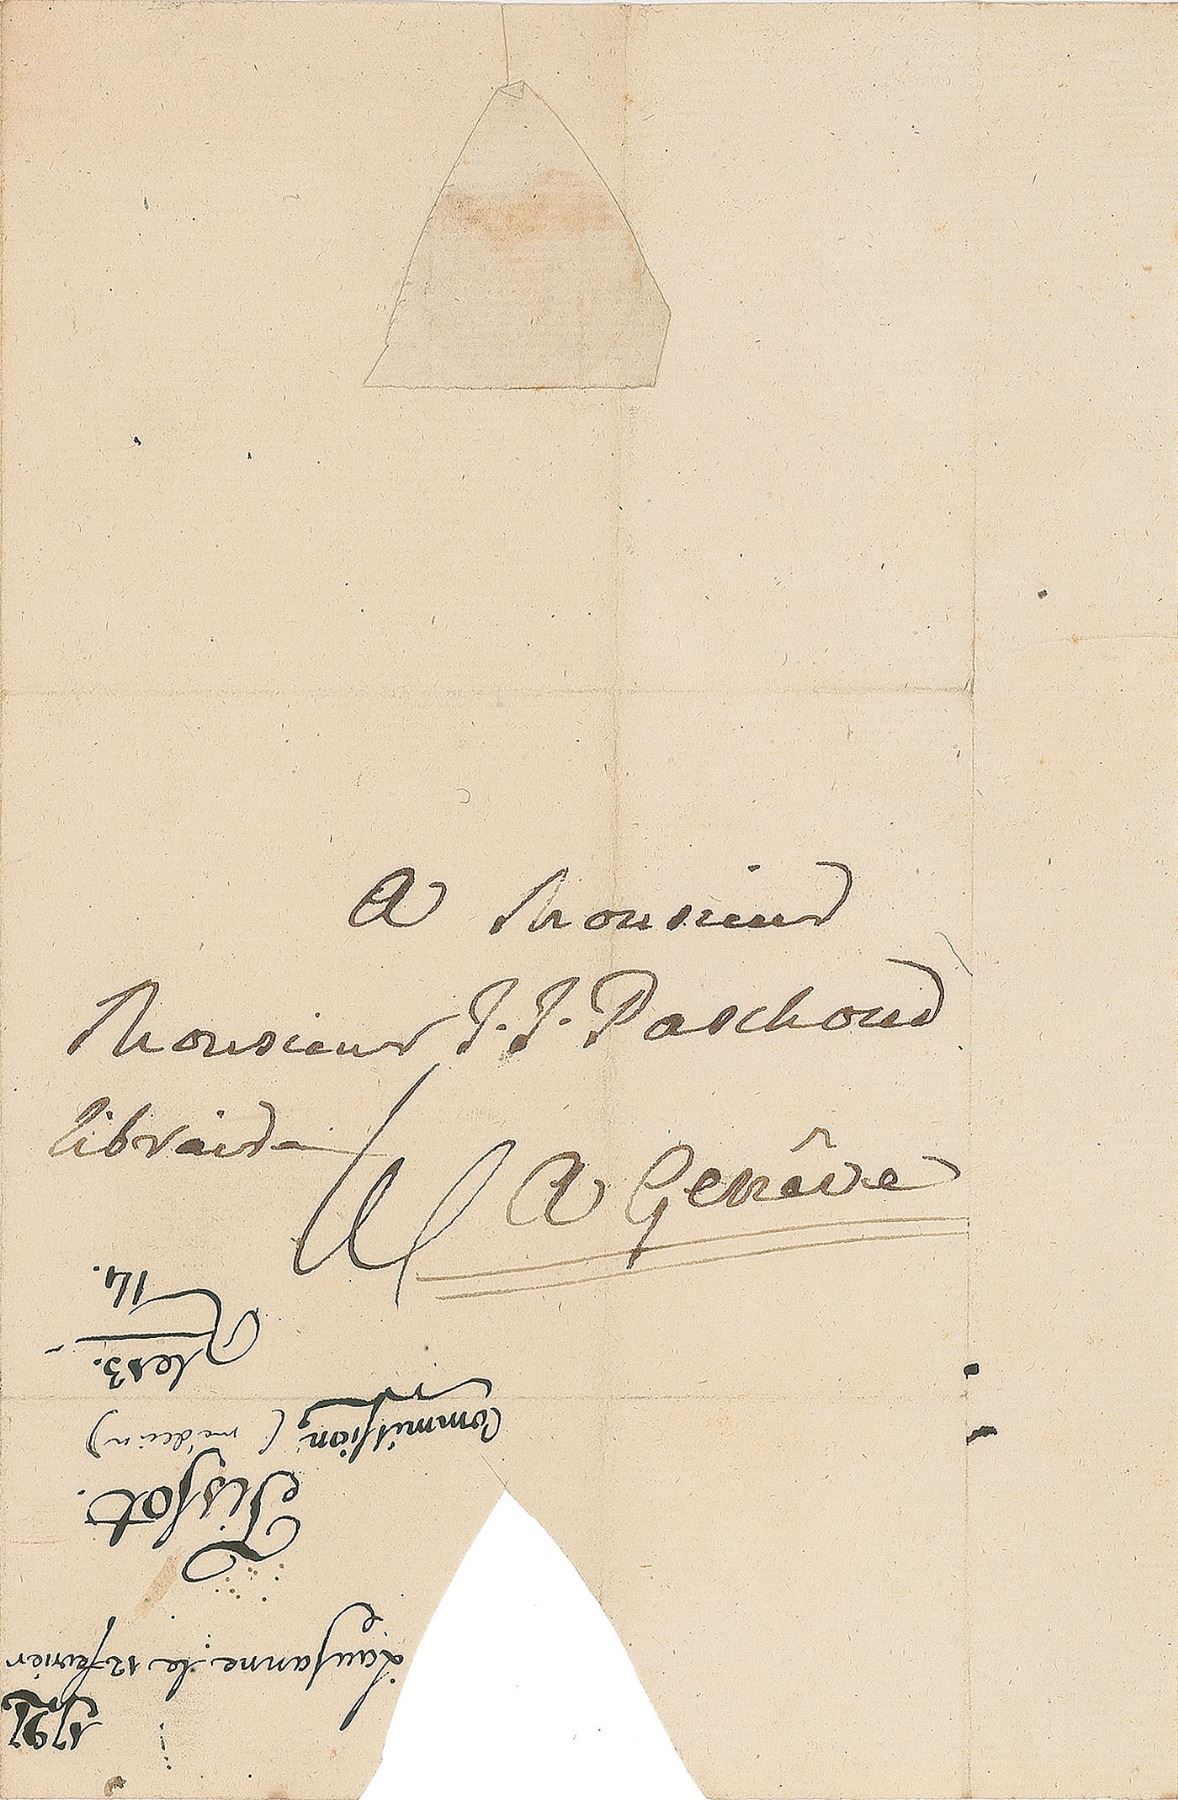 A Monsieur
Monsieur J. J. Paschoud
Libraire
A Genêve
Lausanne, le 12 février
Tissot.
Commission (médecin)
le 13.
R 14.